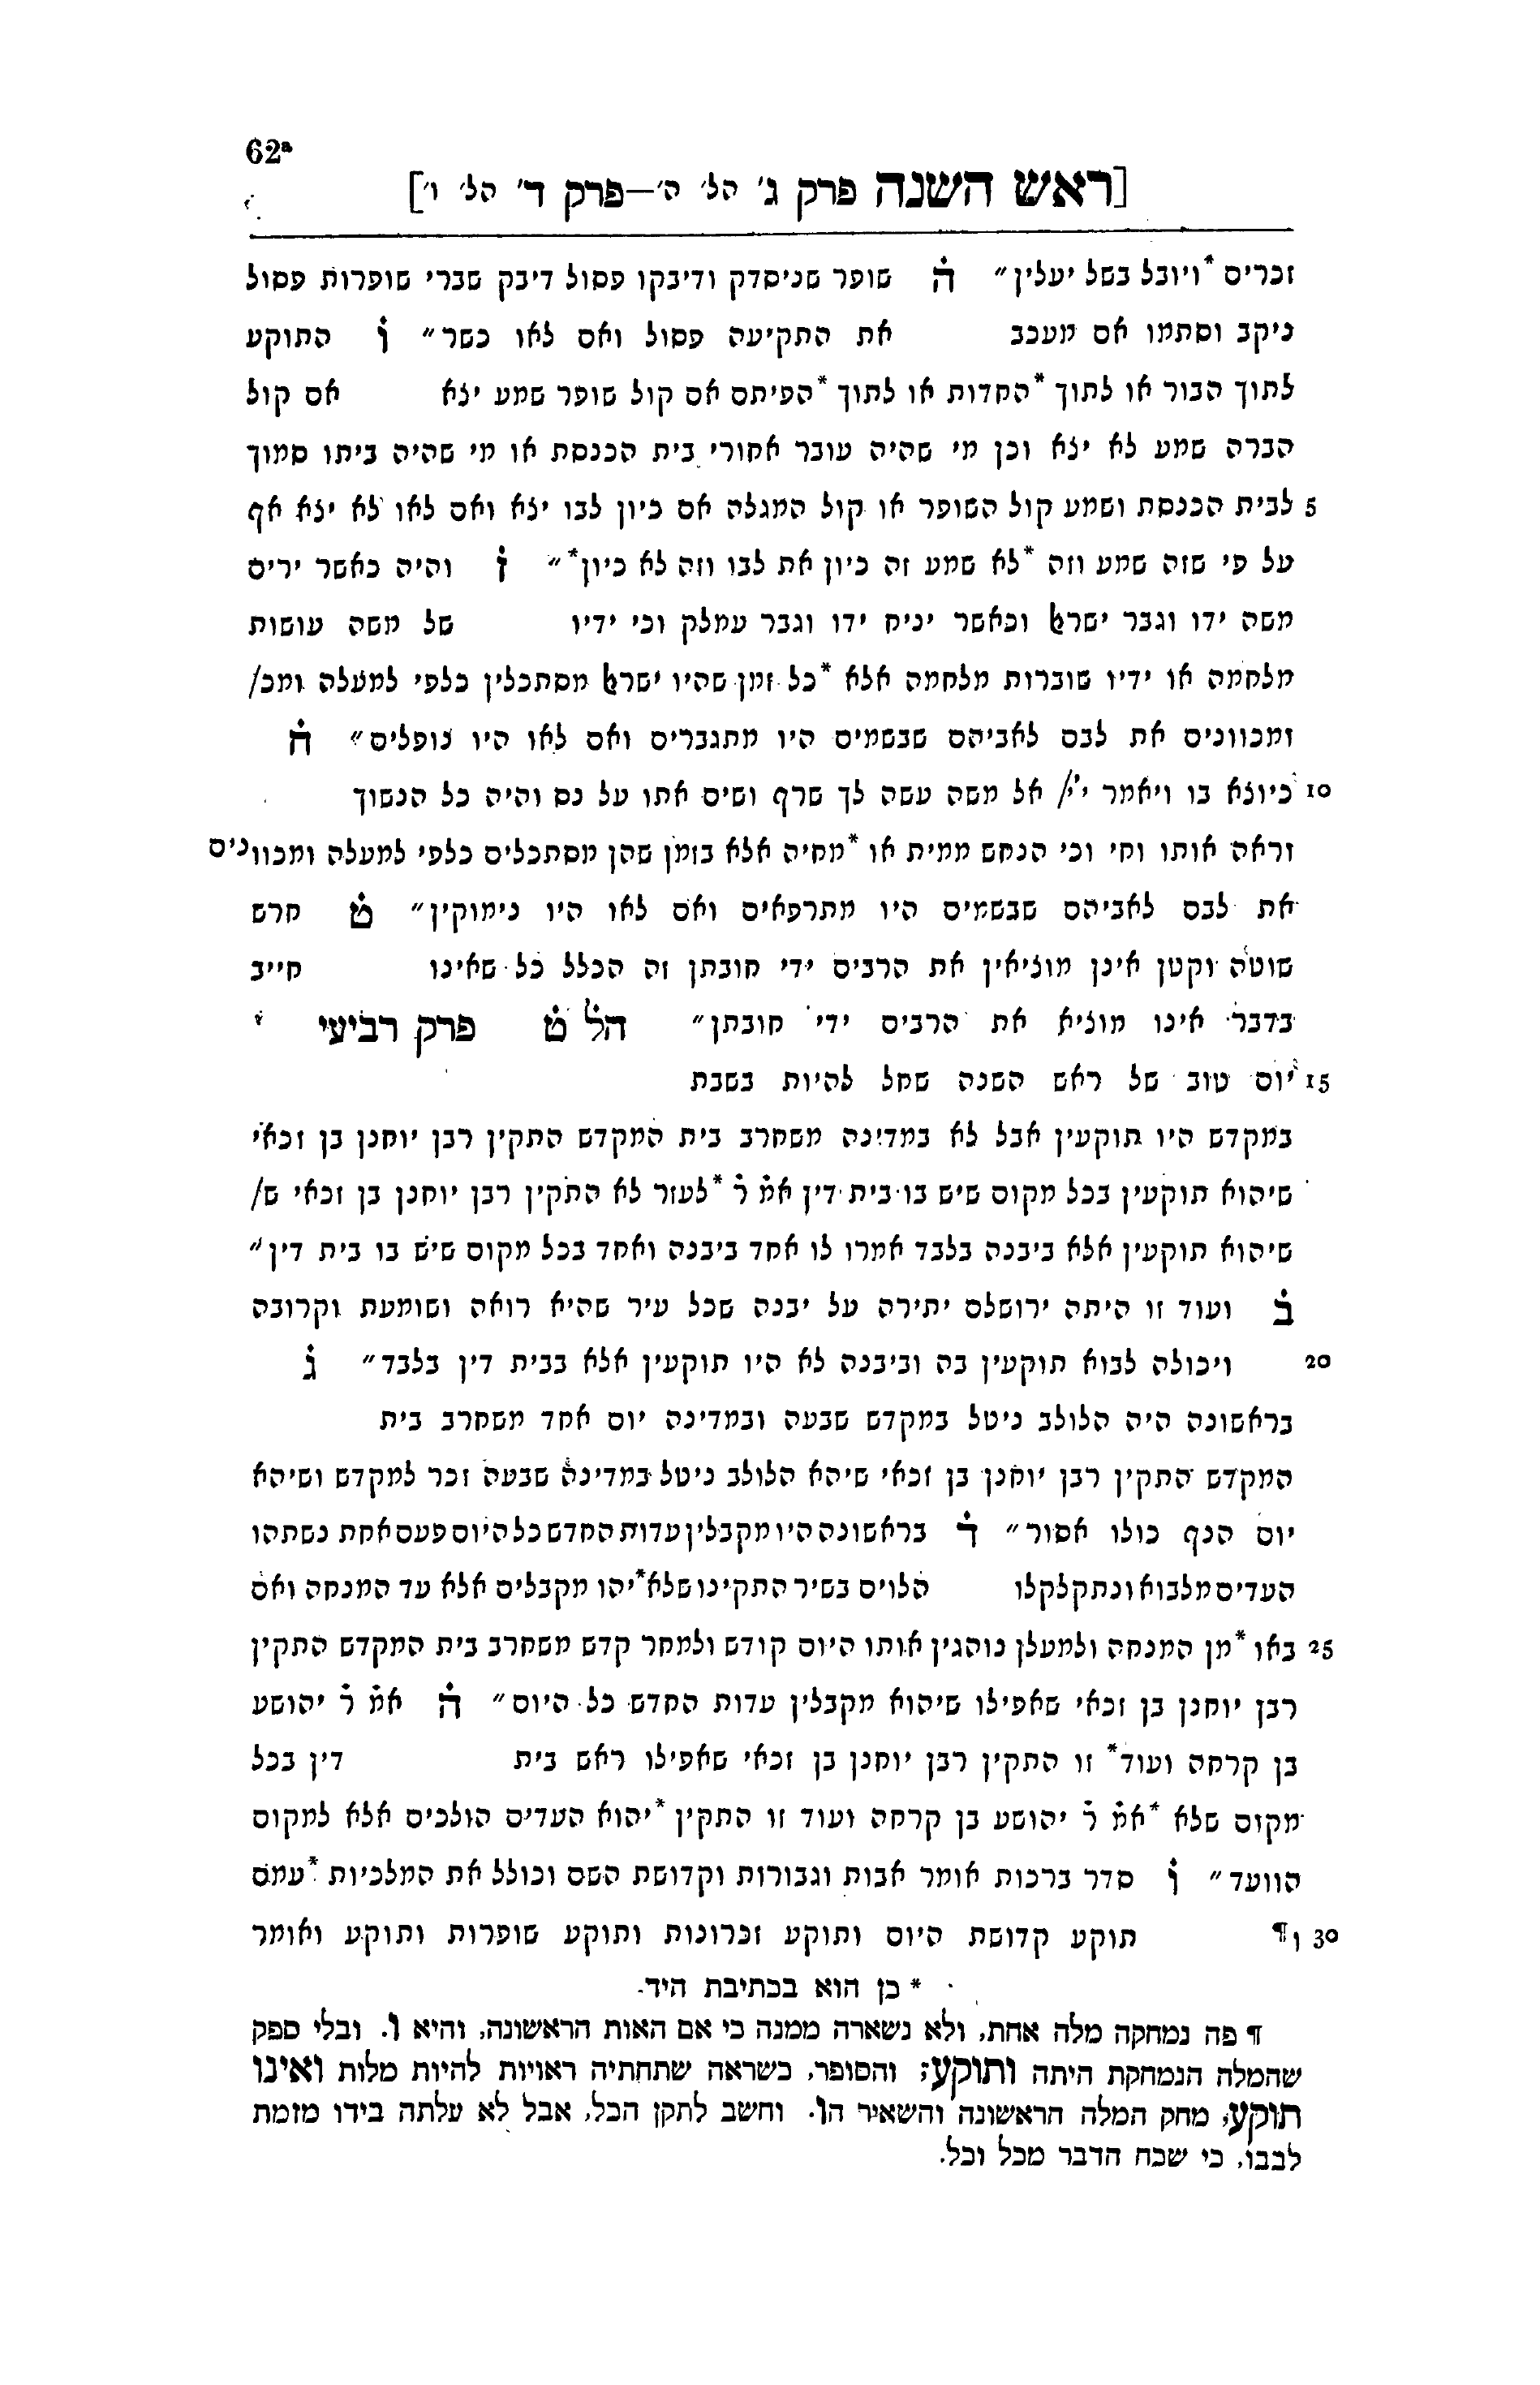 62ª
[ראש השנה פרק ג׳ הל׳ ה׳—פרק ד׳ הל׳ ו׳]
זכרים *ויובל בשל יעלין״ ה שופר שניסדק ודיבקו פסול דיבק שברי שופרות פסול
ניקב וסתמו אם מעכב את התקיעה פסול ואם לאו כשר״ ו התוקע
לתוך הבור או לתוך *החדות או לתוך *הפיתס אם קול שופר שמע יצא אם קול
הברה שמע לא יצא וכן מי שהיה עובר אחורי בית הכנסת או מי שהיה ביתו סמוך
5 לבית הכנסת ושמע קול השופר או קול המגלה אם כיון לבו יצא ואם לאו לא יצא אף
על פי שזה שמע וזה *לא שמע זה כיון את לבו וזה לא כיון*״ ז והיה כאשר ירים
משה ידו וגבר ישרﭏ וכאשר יניח ידו וגבר עמלק וכי ידיו של משה עושות
מלחמה או ידיו שוברות מלחמה אלא *כל זמן שהיו ישרﭏ מסתכלין כלפי למעלה ומכ/
ומכוונים את לבם לאביהם שבשמים היו מתגברים ואם לאו היו נופלים״ ח
10 כיוצא בו ויאמר יי/ אל משה עשה לך שרף ושים אתו על נס והיה כל הנשוך
וראה אותו וחי וכי הנחש ממית או *מחיה אלא בזמן שהן מסתכלים כלפי למעלה ומכוונים
את לבם לאביהם שבשמים היו מתרפאים ואם לאו היו נימוקין״ ט חרש
שוטה וקטן אינן מוציאין את הרבים ידי חובתן זה הכלל כל שאינו חייב
בדבר אינו מוציא את הרבים ידי חובתן״ הל ט פרק רביעי
15 יום טוב של ראש השנה שחל להיות בשבת
במקדש היו תוקעין אבל לא במדינה משחרב בית המקדש התקין רבן יוחנן בן זכאי
שיהוא תוקעין בכל מקום שיש בו בית דין אמ ר *לעזר לא התקין רבן יוחנן בן זכאי ש/
שיהוא תוקעין אלא ביבנה בלבד אמרו לו אחד ביבנה ואחד בכל מקום שיש בו בית דין״
ב ועוד זו היתה ירושלם יתירה על יבנה שכל עיר שהיא רואה ושומעת וקרובה
20 ויכולה לבוא תוקעין בה וביבנה לא היו תוקעין אלא בבית דין בלבד״ ג
בראשונה היה הלולב ניטל במקדש שבעה ובמדינה יום אחד משחרב בית
המקדש התקין רבן יוחנן בן זכאי שיהא הלולב ניטל במדינה שבעה זכר למקדש ושיהא
יום הנף כולו אסור״ ד בראשונה היו מקבלין עדות החדש כל היום פעם אחת נשתהו
העדים מלבוא ונתקלקלו הלוים בשיר התקינו שלא *יהו מקבלים אלא עד המנחה ואם
25 באו *מן המנחה ולמעלן נוהגין אותו היום קודש ולמחר קדש משחרב בית המקדש התקין
רבן יוחנן בן זכאי שאפילו שיהוא מקבלין עדות החדש כל היום״ ה אמ ר יהושע
בן קרחה ועוד* זו התקין רבן יוחנן בן זכאי שאפילו ראש בית דין בכל
מקום שלא *אמ ר יהושע בן קרחה ועוד זו התקין *יהוא העדים הולכים אלא למקום
הוועד״ ו סדר ברכות אומר אבות וגבורות וקדושת השם וכולל את המלכיות *עמם
30 ו¶ תוקע קדושת היום ותוקע זכרונות ותוקע שופרות ותוקע ואומר
* כן הוא בכתיבת היד.
¶ פה נמחקה מלה אחת, ולא נשארה ממנה כי אם האות הראשונה, והיא ו. ובלי ספק
שהמלה הנמחקת היתה ותוקע; והסופר, כשראה שתחתיה ראויות להיות מלות ואינו
תוקע, מחק המלה הראשונה והשאיר הו. וחשב לתקן הכל, אבל לא עלתה בידו מזמת
לבבו, כי שכח הדבר מכל וכל.